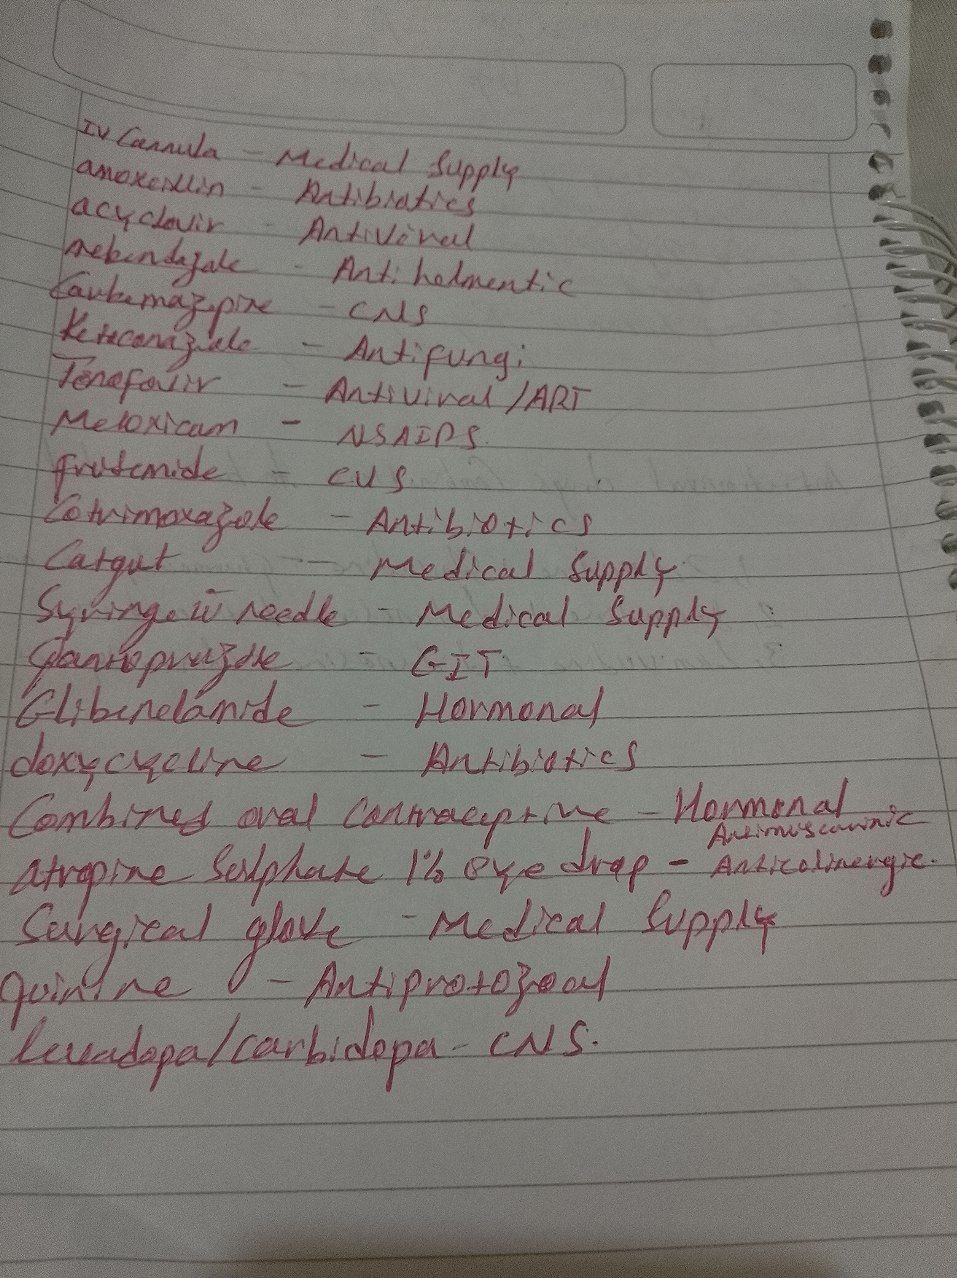 IV Cannula - Medical Supply
amoxcillin - Antibiotics
acyclovir - Antiviral
mebendazole - Antihelmentic
Carbemazepine - CNS
Ketoconazole - Antifungi
Tenofovir - Antiviral/ART
Meloxicam - NSAIDS
frusemide - CVS
Cotrimoxazole - Antibiotics
Catgut - Medical Supply
Syringe w̄ needle - Medical Supply
pantoprazole - GIT
Glibenclamide - Hormonal
doxycycline - Antibiotics
Combined oral contraceptive - Hormonal
Antimuscarinic
atropine Sulphate 1% eye drop - Anticolinergic.
Surgical glove - Medical Supply
quinine - Antiprotozoal
levadopa/carbidopa - CNS.